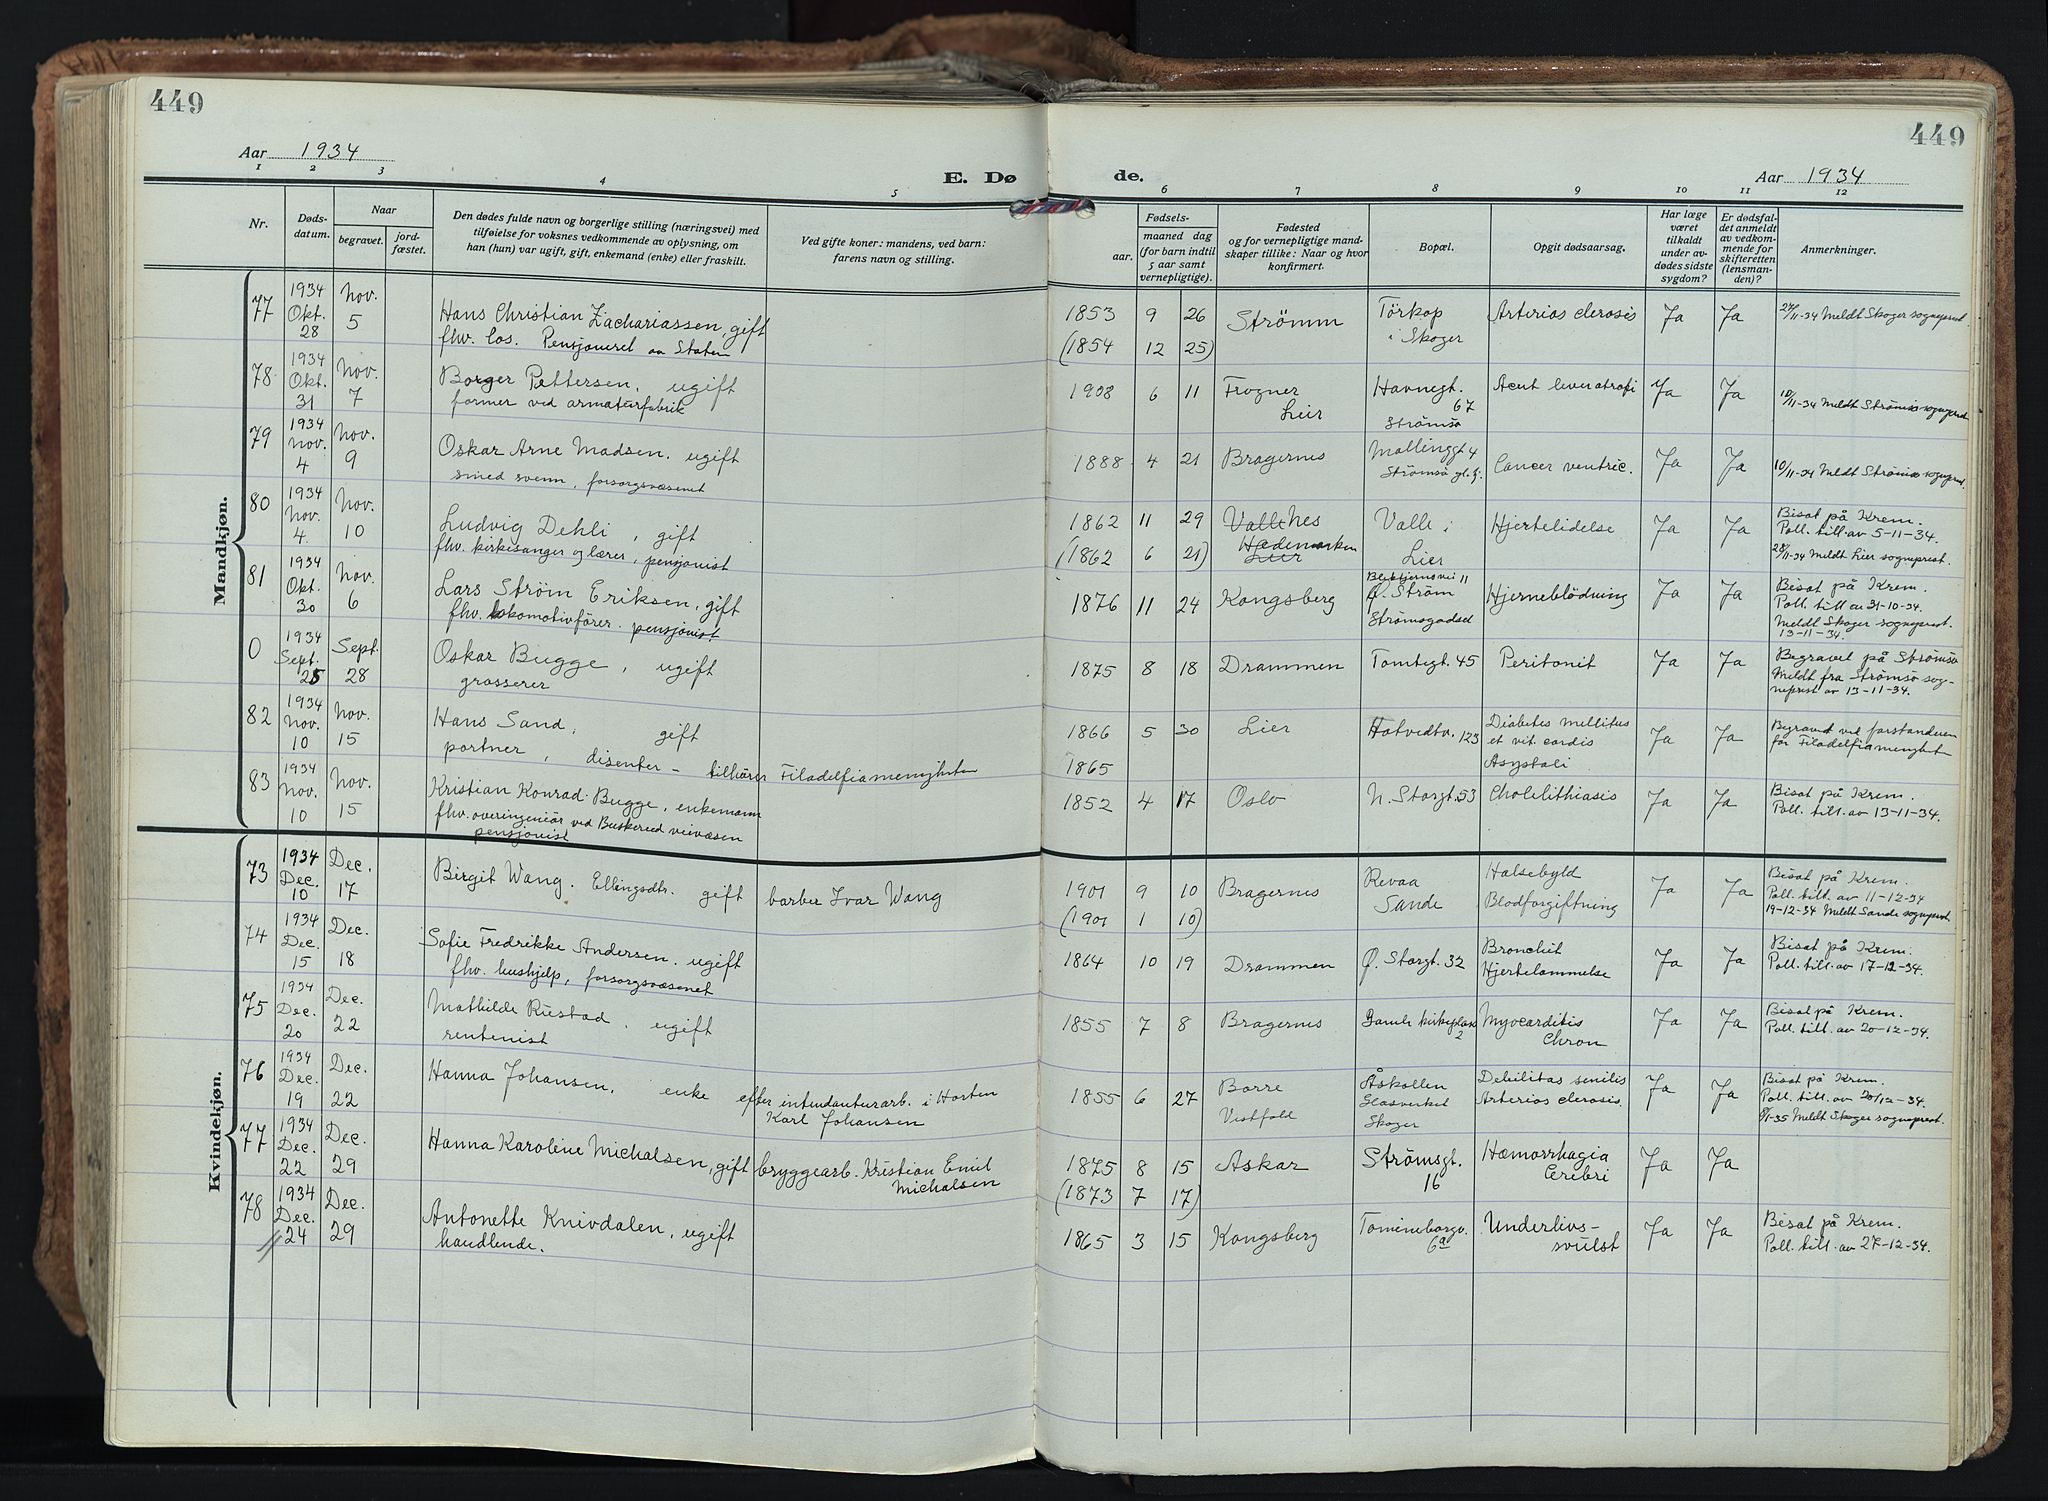 449
449
Aar 1934
E. Dø
de.
Aar 1934
1 2 3 4 5 6 7 8 9 10 11 12
Nr.
Døds-
datum.
Naar
begravet.
jord-
fæstet.
Den dødes fulde navn og borgerlige stilling (næringsvei) med
tilføielse for voksnes vedkommende av oplysning, om
han (hun) var ugift, gift, enkemand (enke) eller fraskilt.
Ved gifte koner: mandens, ved barn:
farens navn og stilling.
Fødsels-
aar.
maaned dag
(for barn indtil
5 aar samt
vernepligtige).
Fødested
og for vernepligtige mand-
skaper tillike: Naar og hvor
konfirmert.
Bopæl.
Opgit dødsaarsag.
Har læge
været
tilkaldt
under av-
dødes sidste
sygdom?
Er dødsfal-
det anmeldt
av vedkom-
mende for
skifteretten
(lensman-
den)?
Anmerkninger.
Mandkjøn.
77 1934 Okt. 28 Nov. 5
Hans Christian Zachariassen, gift
fhv. los. Pensjoneret av Staten
1853 9 26 Strømm Törkop Arterios clerosis Ja Ja 27/11-34 Meldt Skoger sogneprest.
(1854 12 25) i Skoger
78 1934 Okt. 31 Nov. 7
Borger Pettersen, ugift
former ved armaturfabrik
1908 6 11 Frogner Havnegt. Acut leveratrofi Ja Ja 10/11-34 Meldt Strömsö sogneprest
Lier 67
Strömsö
79 1934 Nov. 4 Nov. 9
Oskar Arne Madsen, ugift
smed svenn, forsorgsvæsenet
1888 4 21 Bragernes Mallinggt 4 Cancer ventric. Ja Ja 10/11-34 Meldt Strömsö sogneprest.
Strömsö gl. hj.
80 1934 Nov. 4. Nov. 10
Ludvig Dehli, gift
fhv. kirkesanger og lærer, pensjonist
1862 11 29 Valli Nes Valle i Hjertelidelse Ja Ja Bisat på Krem.
Poll. till. av 5-11-34.
(1862 6 21) Hedemarken Lier 28/11-34 Meldt Lier sogneprest.
Lier
81 1934 Okt. 30 Nov. 6
Lars Strøm Eriksen, gift
fhv. lokomotivförer. pensjonist
1876 11 24 Kongsberg Blektjernsvei 11 Hjerneblödning Ja Ja Bisat på Krem.
Ø. Strøm Poll. till av 31-10-34.
Strömsgodset Meldt Skoger sogneprest.
13-11-34.
0 1934 Sept. 25 Sept. 28
Oskar Bugge, ugift
grosserer
1875 8 18 Drammen Tomtegt. 45 Peritonit Ja Ja Begravet på Strömsö
Meldt fra Strömsö sog-
neprest av 13-11-34.
82 1934 Nov. 10 Nov. 15
Hans Sand, gift
portner, disenter - tilhörer Filadelfiamenigheten
1866 5 30 Lier Hotvedtv. 123 Diabetes mellitus Ja Ja Begravet ved forstanderen
et vit. cordis for Filadelfiamenighet
1865 Asystoli
83 1934 Nov. 10 Nov. 15
Kristian Konrad Bugge, enkemann
fhv. overingeniör ved Buskerud veivæsen
pensjonist
1852 4 17 Oslo N. Storgt. 53 Cholelithiasis Ja Ja Bisat på Krem.
Poll. till. av 13-11-34.
Kvindekjøn.
73 1934 Dec. 10 Dec. 17
Birgit Wang. Ellingsdtr. gift barber Ivar Wang
1901 9 10 Bragernes Revaa Halsebyld Ja Ja Bisat på Krem.
Sande Blodforgiftning Poll. till. av 11-12-34
(1901 1 10) 19-12-34 Meldt Sande sogneprest.
74 1934 Dec. 15 Dec. 18
Sofie Fredrikke Andersen. ugift
fhv. hushjelp, forsorgsvæsenet
1864 10 19 Drammen Ø. Storgt. 32 Bronchit Ja Ja Bisat på Krem.
Hjertelammelse Poll. till. av 17-12-34.
75 1934 Dec. 20 Dec. 22
Mathilde Rustad, ugift
rentenist
1855 7 8 Bragernes Gamle kirkeplass Myocarditis Ja Ja Bisat på Krem.
2 Chron Poll. till. av 20-12-34.
76 1934 Dec. 19 Dec. 22
Hanna Johansen, enke efter intendanturarb. i Horten
Karl Johansen
1855 6 27 Borre Åskollen Debilitas senilis Ja Ja Bisat på Krem.
Vestfold Glasverket Arterios clerosis. Poll. till. av 20/12-34.
Skoger 8/1-35 Meldt Skoger sogneprest.
77 1934 Dec. 22 Dec. 29
Hanna Karoline Michalsen, gift bryggearb. Kristian Emil
Michalsen
1875 8 15 Askar Strömsgt. Hæmorrhagia Ja Ja
16 Cerebri
(1873 7 17)
78 1934 Dec. 24 Dec. 29
Antonette Knivdalen, ugift
handlende.
1865 3 15 Kongsberg Tomineborgv. Underlivs- Ja Ja Bisat på Krem.
6a svulst Poll. till. av 27-12-34.